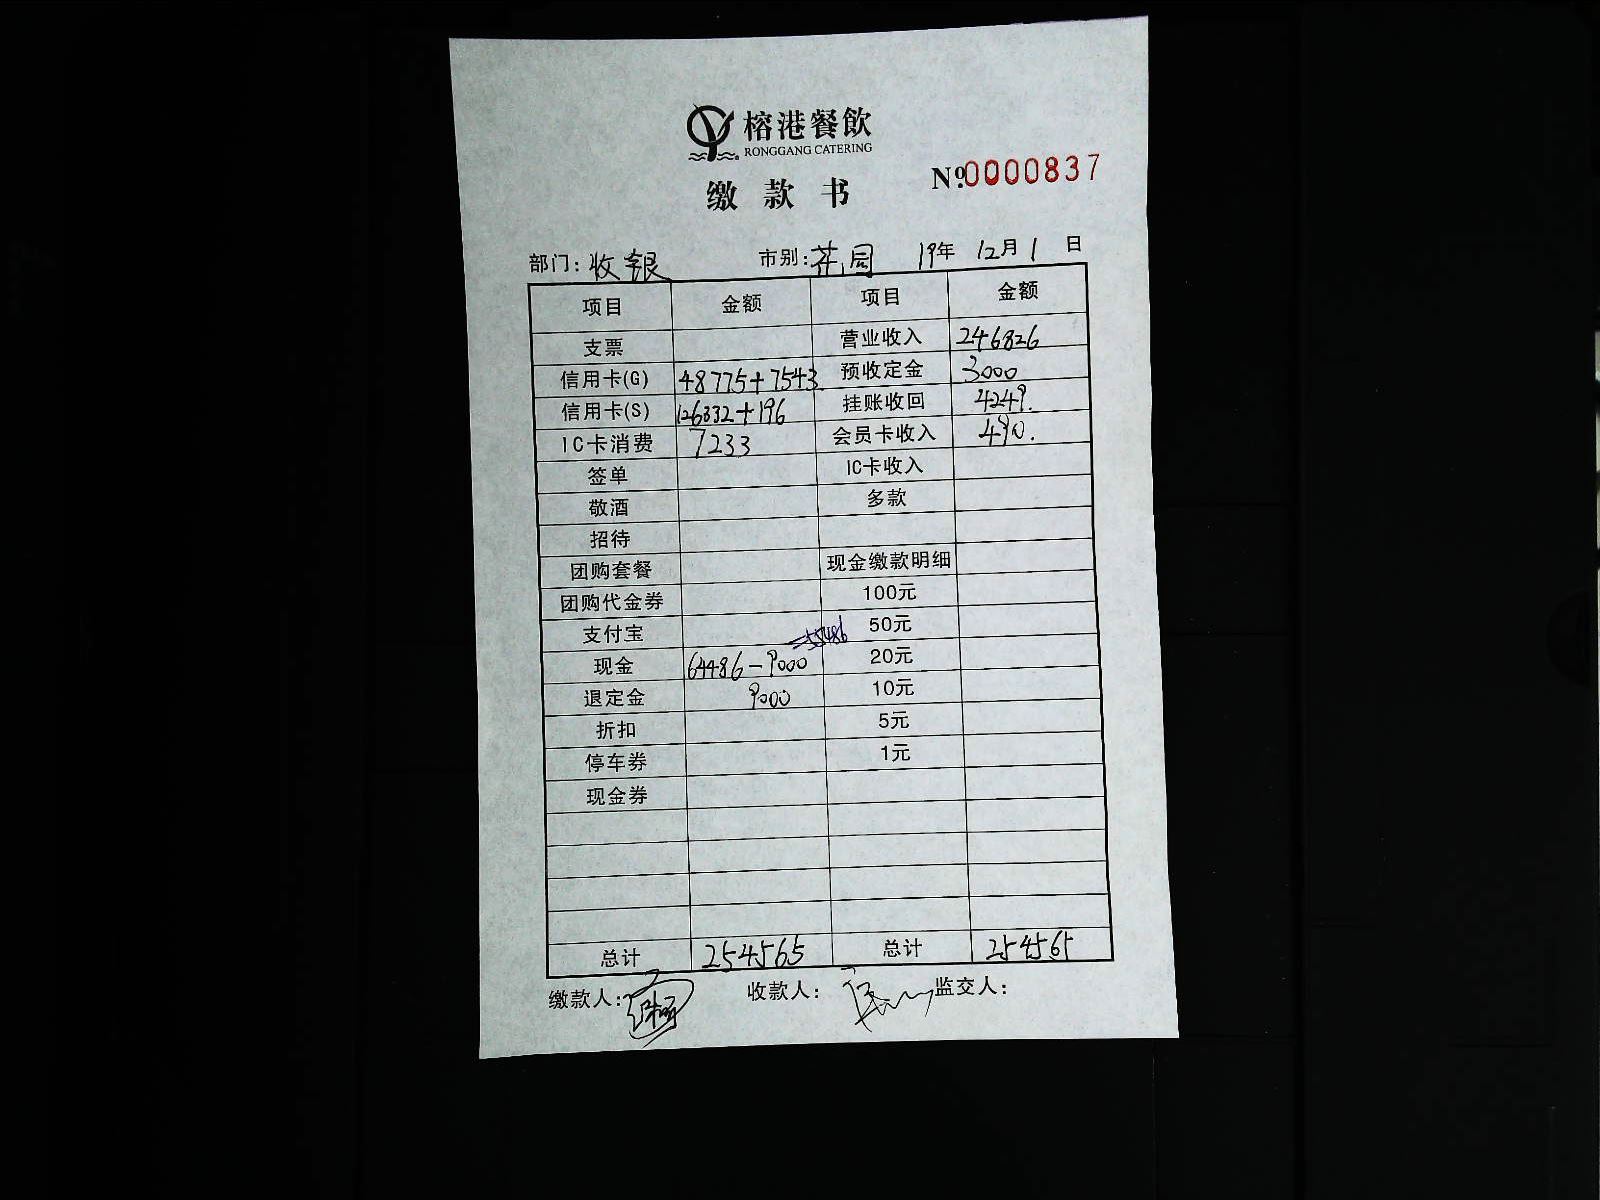 榕港餐飲
RONGGANG CATERING
缴款书
Nº.0000837
部门: 收银 市别: 花园 19年 12月 1日
项目 金额 项目 金额
支票 营业收入 246826
信用卡(G) 48775+7543 预收定金 3000
信用卡(S) 126332+196 挂账收回 4249.
IC卡消费 7233 会员卡收入 490.
签单 IC卡收入
敬酒 多款
招待
团购套餐 现金缴款明细
团购代金券 100元
支付宝 50元
现金 64486-9000 =55486 20元
退定金 9000 10元
折扣 5元
停车券 1元
现金券
总计 254565 总计 254565
缴款人: 收款人: 监交人: